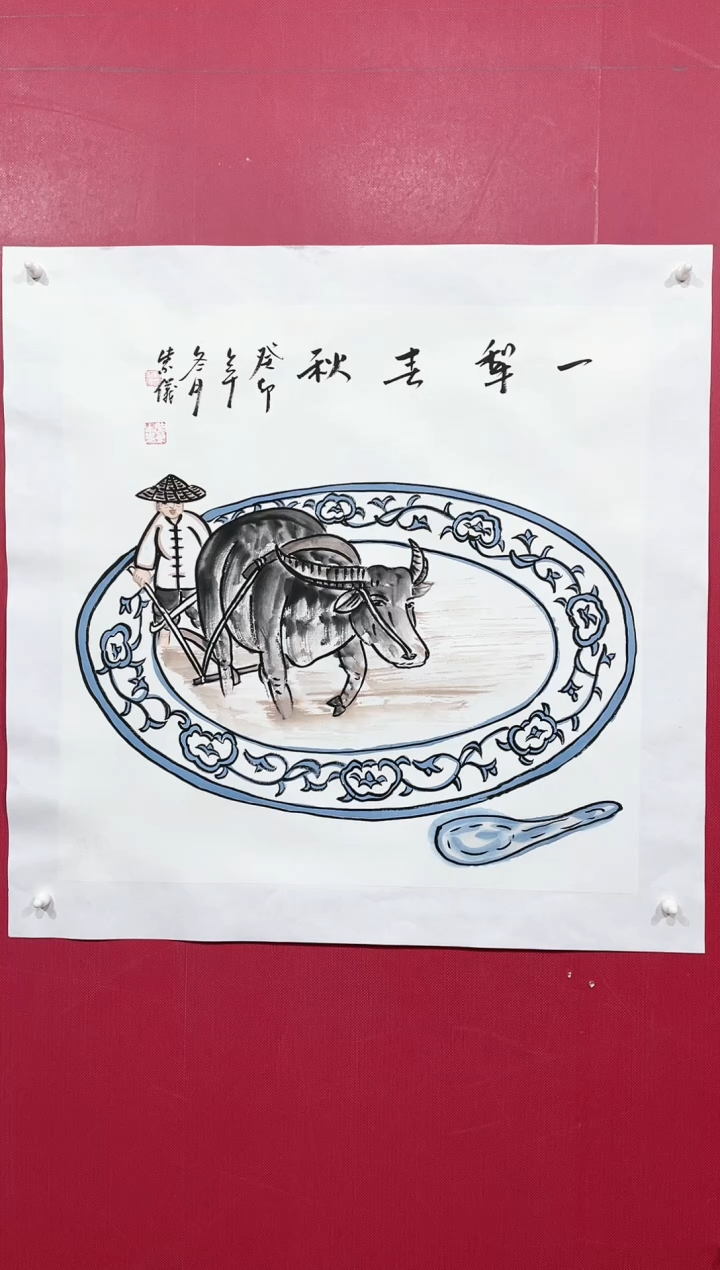 一犁春秋
癸卯
年
冬月
紫儀